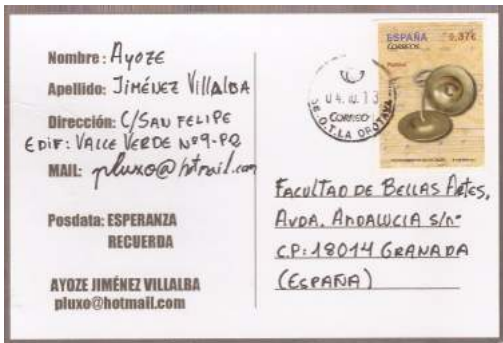 Nombre: Ayoze
Apellido: Jiménez Villalba
Dirección: C/SAN FELIPE
EDIF: VALLE VERDE Nº9-P2
MAIL: pluxo@hotmail.com
Posdata: ESPERANZA
RECUERDA
AYOZE JIMÉNEZ VILLALBA
pluxo@hotmail.com
ESPAÑA 0,37€
CORREOS
04.10.13
CORREOS
O.T. LA OROTAVA
FACULTAD DE BELLAS ARTES,
AVDA. ANDALUCIA S/nº
C.P: 18014 GRANADA
(ESPAÑA)